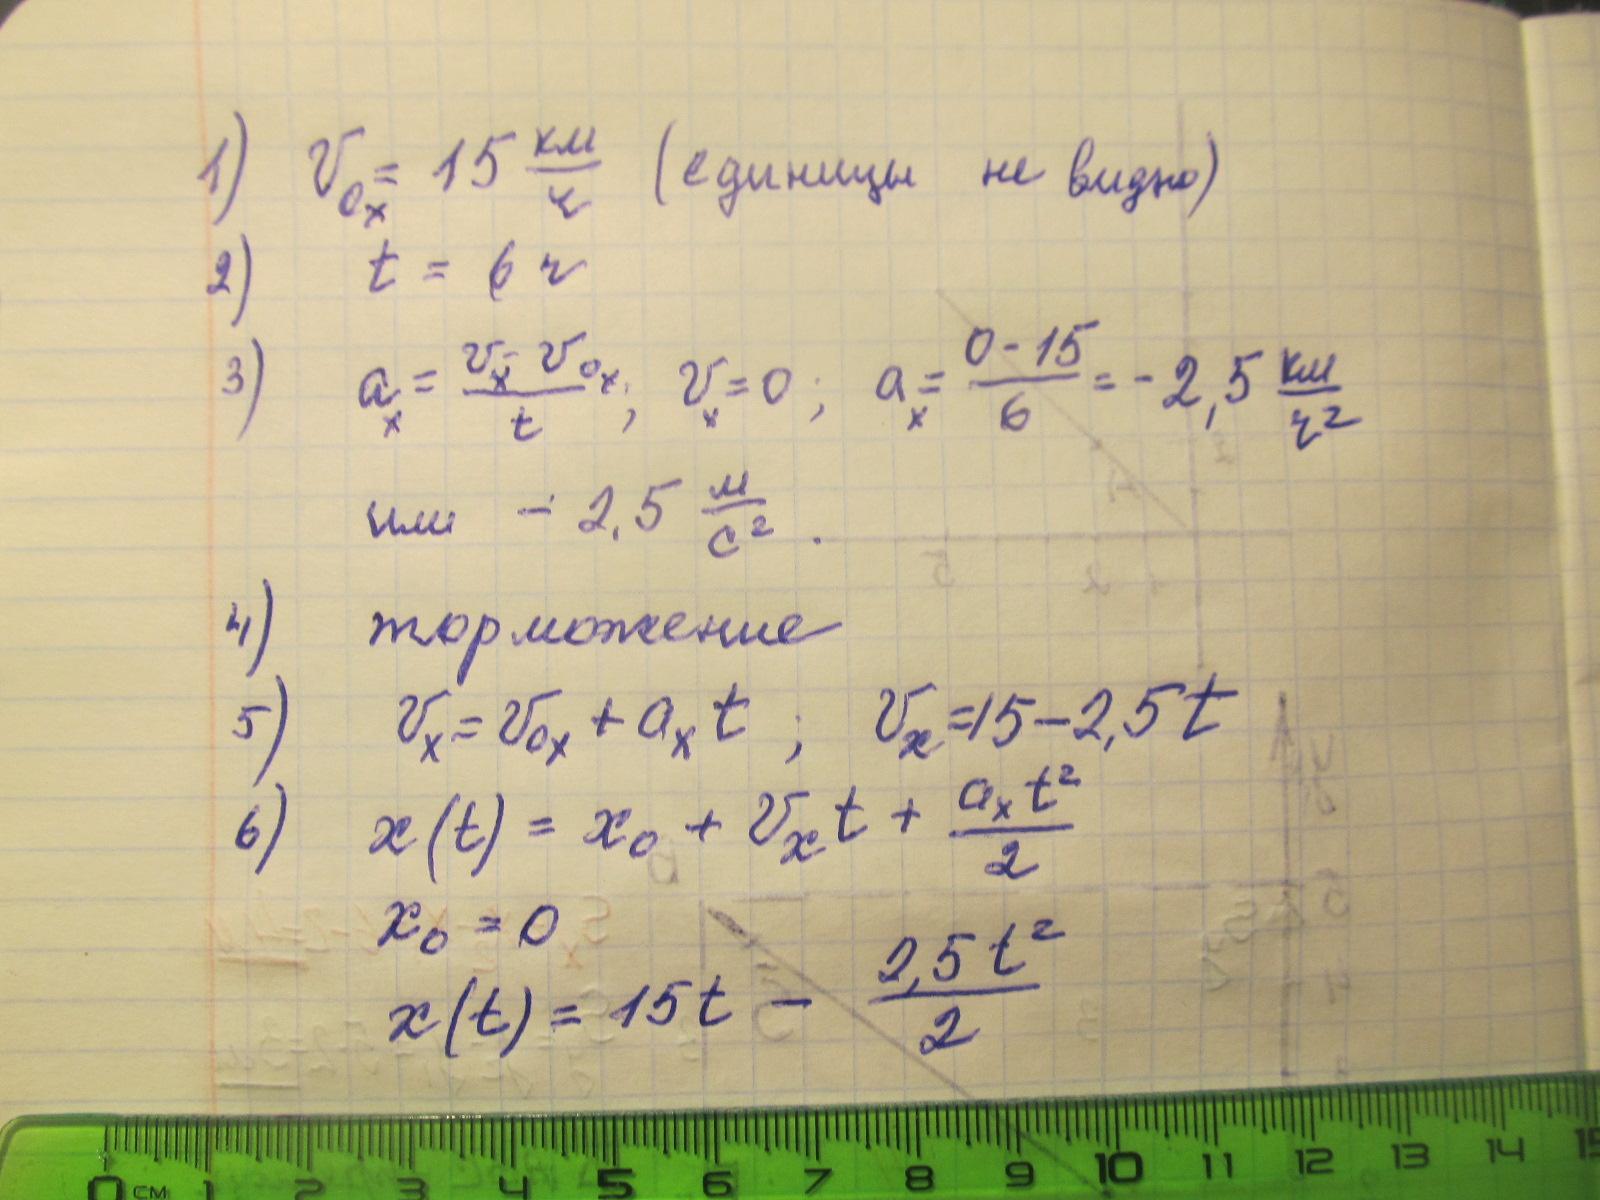 1) V₀ₓ = 15 км/ч (единицы не видно)
2) t = 6 ч
3) aₓ = (vₓ - v₀ₓ)/t ; vₓ = 0 ; aₓ = (0 - 15)/6 = -2,5 км/ч²
или - 2,5 м/с² .
4) торможение
5) vₓ = v₀ₓ + aₓt ; vₓ = 15 - 2,5t
6) x(t) = x₀ + vₓt + aₓt²/2
x₀ = 0
x(t) = 15t - 2,5t²/2
0 см 1 2 3 4 5 6 7 8 9 10 11 12 13 14 15